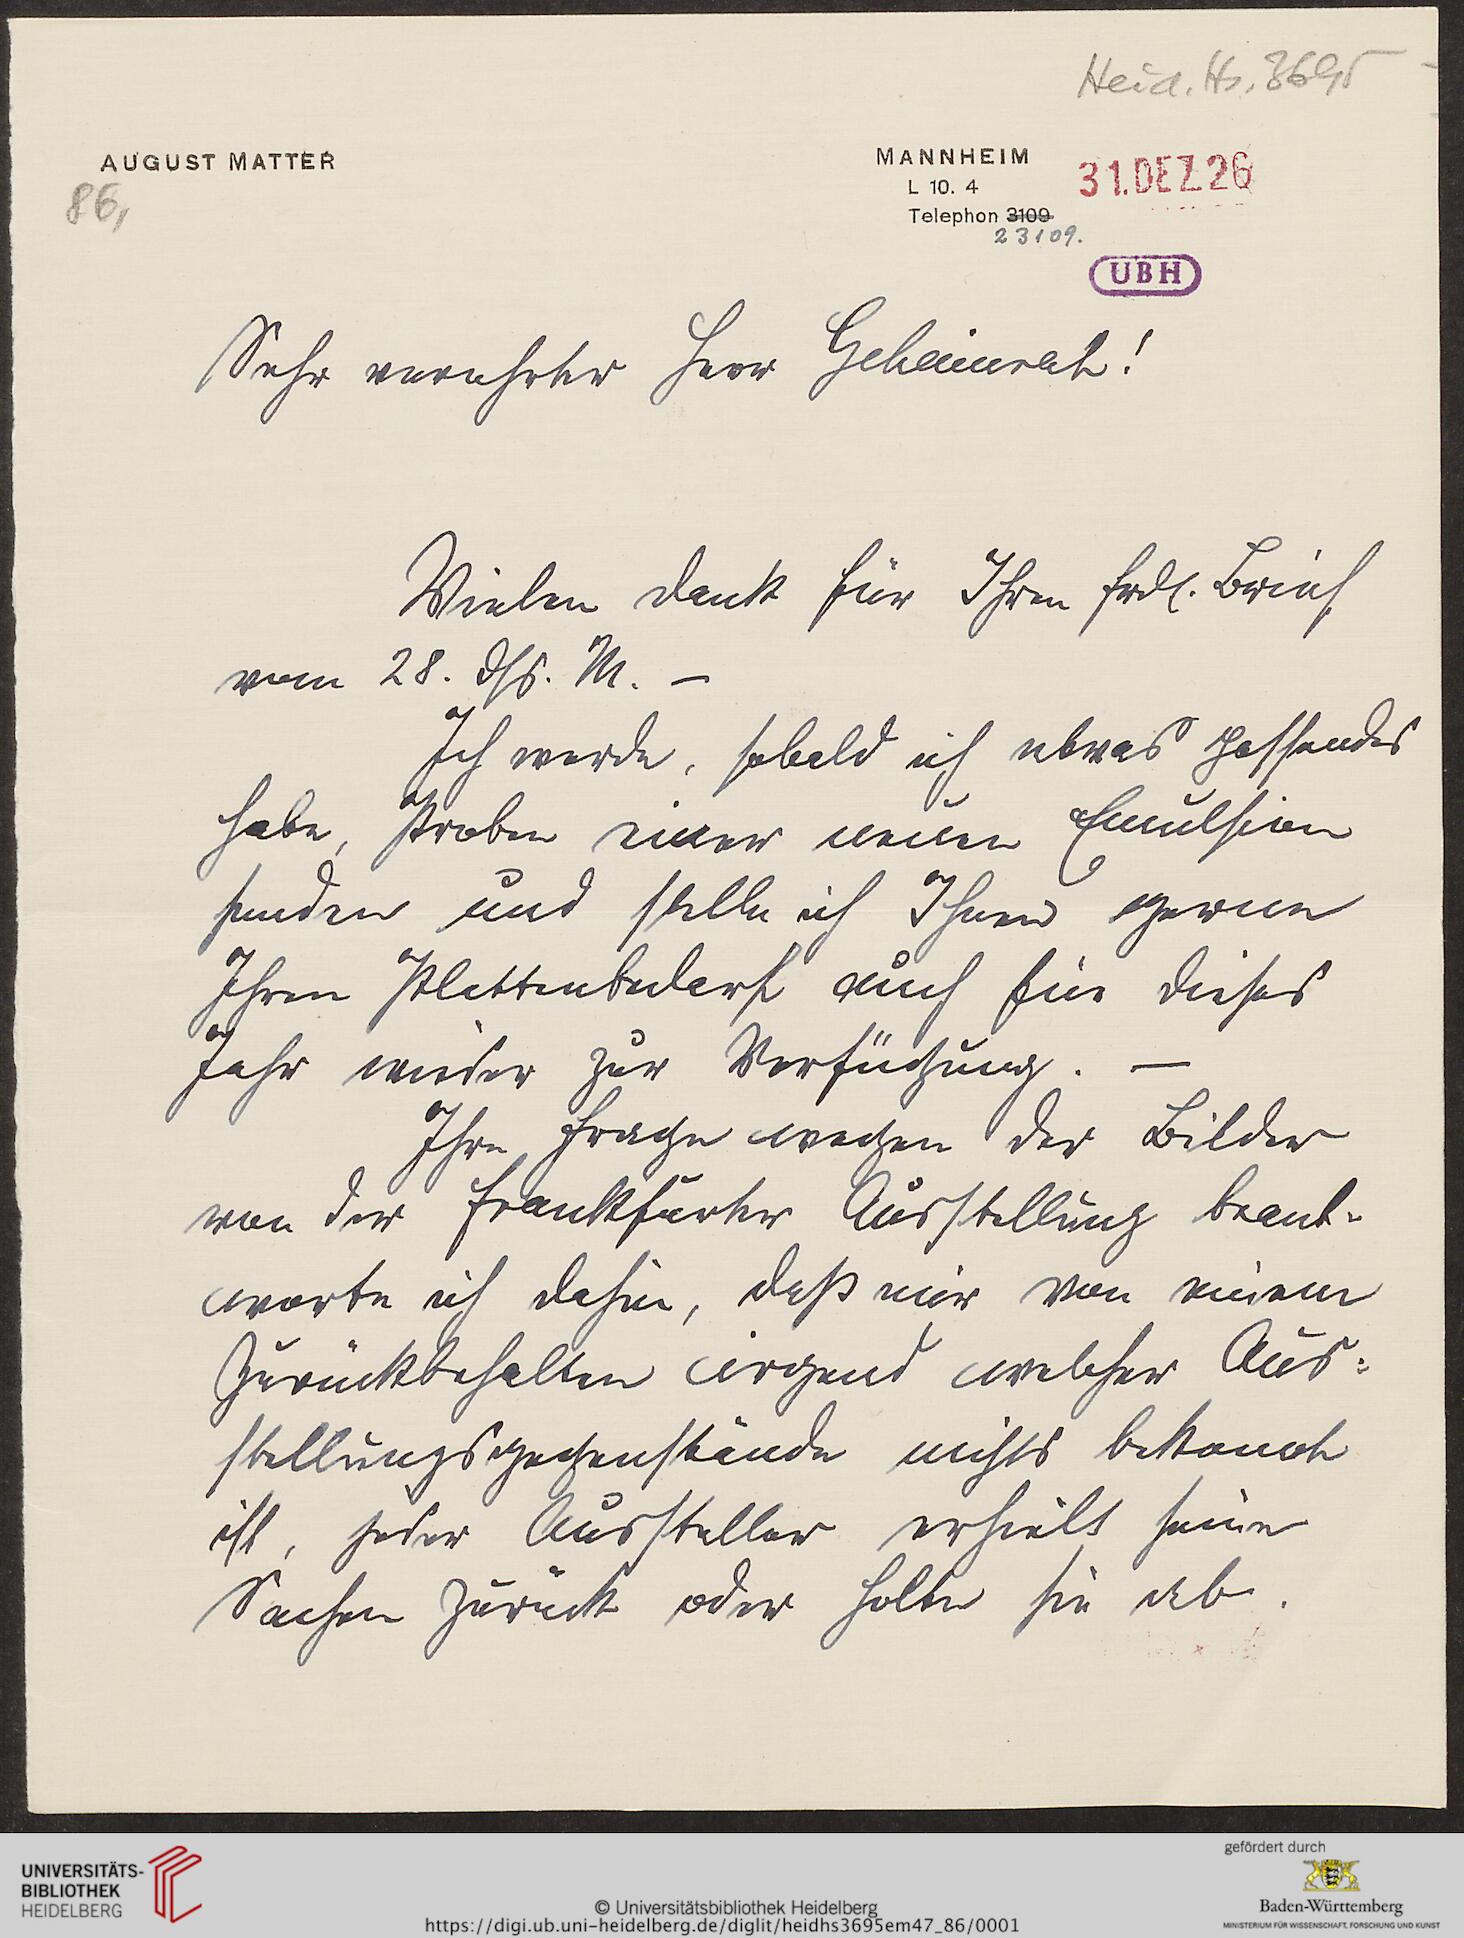 Heid. Hs. 3695
AUGUST MATTER
86,
MANNHEIM
L 10. 4
Telephon 3109
23109.
31. DEZ. 26
UBH
Sehr verehrter Herr Geheimrat!
Vielen Dank für Ihren frdl. Brief
vom 28. dss. M. —
Ich werde, sobald ich etwas passendes
habe, Proben einer neuen Emulsion
senden und stelle ich Ihnen gerne
Ihren Plattenbedarf auch für dieses
Jahr wieder zur Verfügung. —
Ihre Frage wegen der Bilder
von der Frankfurter Ausstellung beant-
worte ich dahin, daß mir von einem
Zurückbehalten irgend welcher Aus-
stellungsgegenstände nichts bekannt
ist, jeder Aussteller erhielt seine
Sachen zurück oder holte sie ab.
UNIVERSITÄTS-
BIBLIOTHEK
HEIDELBERG
© Universitätsbibliothek Heidelberg
https://digi.ub.uni-heidelberg.de/diglit/heidhs3695em47_86/0001
gefördert durch
Baden-Württemberg
MINISTERIUM FÜR WISSENSCHAFT, FORSCHUNG UND KUNST